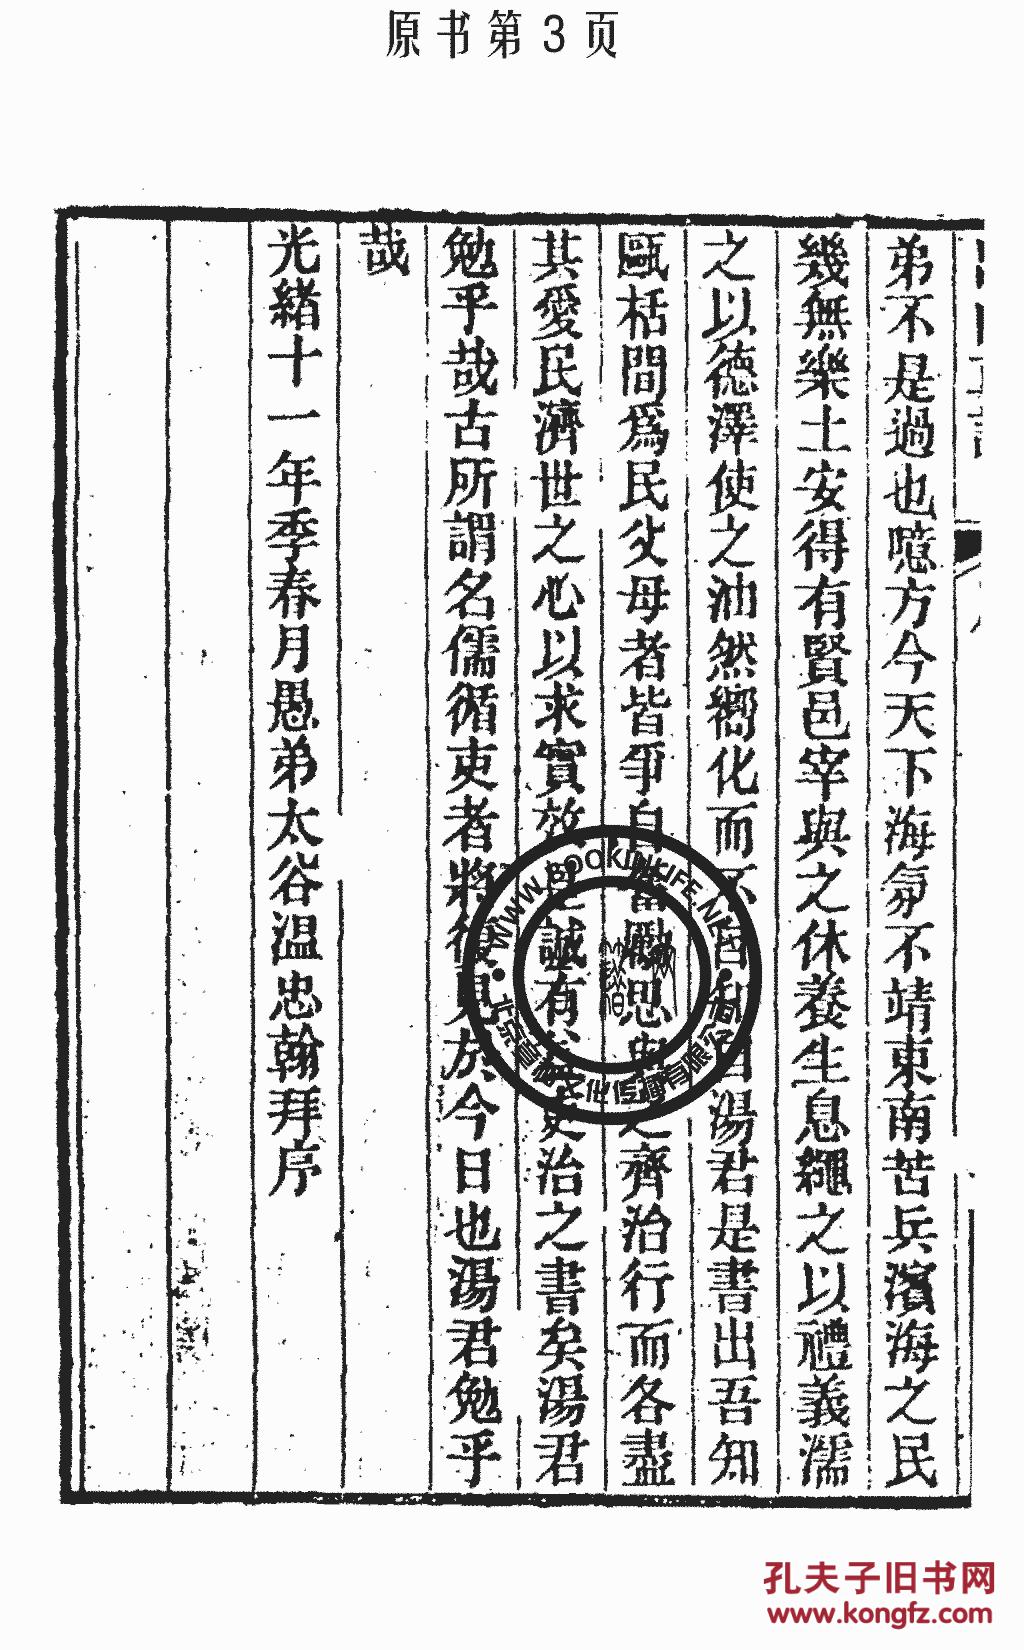 原书第3页
弟不是過也噫方今天下海氛不靖東南苦兵濱海之民
幾無樂土安得有賢邑宰與之休養生息繩之以禮義濡
之以德澤使之油然嚮化而不自知湯君是書出吾知
甌栝間爲民父母者皆爭自勵思之齊治行而各盡
其愛民濟世之心以求實效誠有吏治之書矣湯君
勉乎哉古所謂名儒循吏者將復見於今日也湯君勉乎
哉
光緒十一年季春月愚弟太谷温忠翰拜序
WWW.BOOKINLIFE.NET
孔夫子旧书网
www.kongfz.com